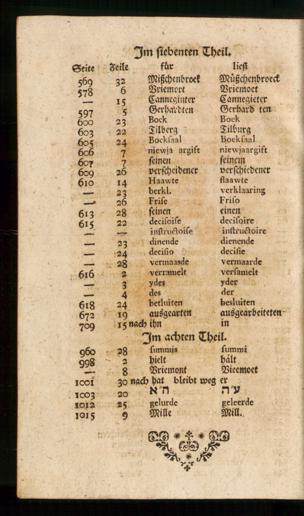 Im siebenten Theil.
Seite Zeile für ließ
569 32 Mißchenbroek Müßchenbroeck
578 6 Vriemoet Vriemoet
— 15 Canneginter Cannegieter
597 5 Gerhardten Gerhard ten
600 23 Bock Boek
603 22 Tilberg Tilburg
605 24 Bocksaal Boeksaal
606 7 niewja argift niewjaargift
607 7 seinen seinem
609 26 verscheibener verschiebener
610 14 Haawte staawte
— 23 berkl. verklaaring
— 26 Frise Friso
613 28 seinen einen
615 22 decisoise decisoire
— — instructoise instructoire
— 23 dinende dienende
— 24 decisio decisie
— 28 vermaasde vermaarde
616 2 verramelt versamelt
— 3 ydes yder
— 4 des der
618 24 betluiten besluiten
672 19 ausgearten ausgearbeiteten
709 15 nach ihn in
Im achten Theil.
960 28 summis summi
998 2 hielt hält
— 8 Vriemont Vriemoet
1001 30 nach hat bleibt weg er
1003 20 ה״א ע״ה
1012 25 gelurde geleerde
1015 9 Mille Mill.